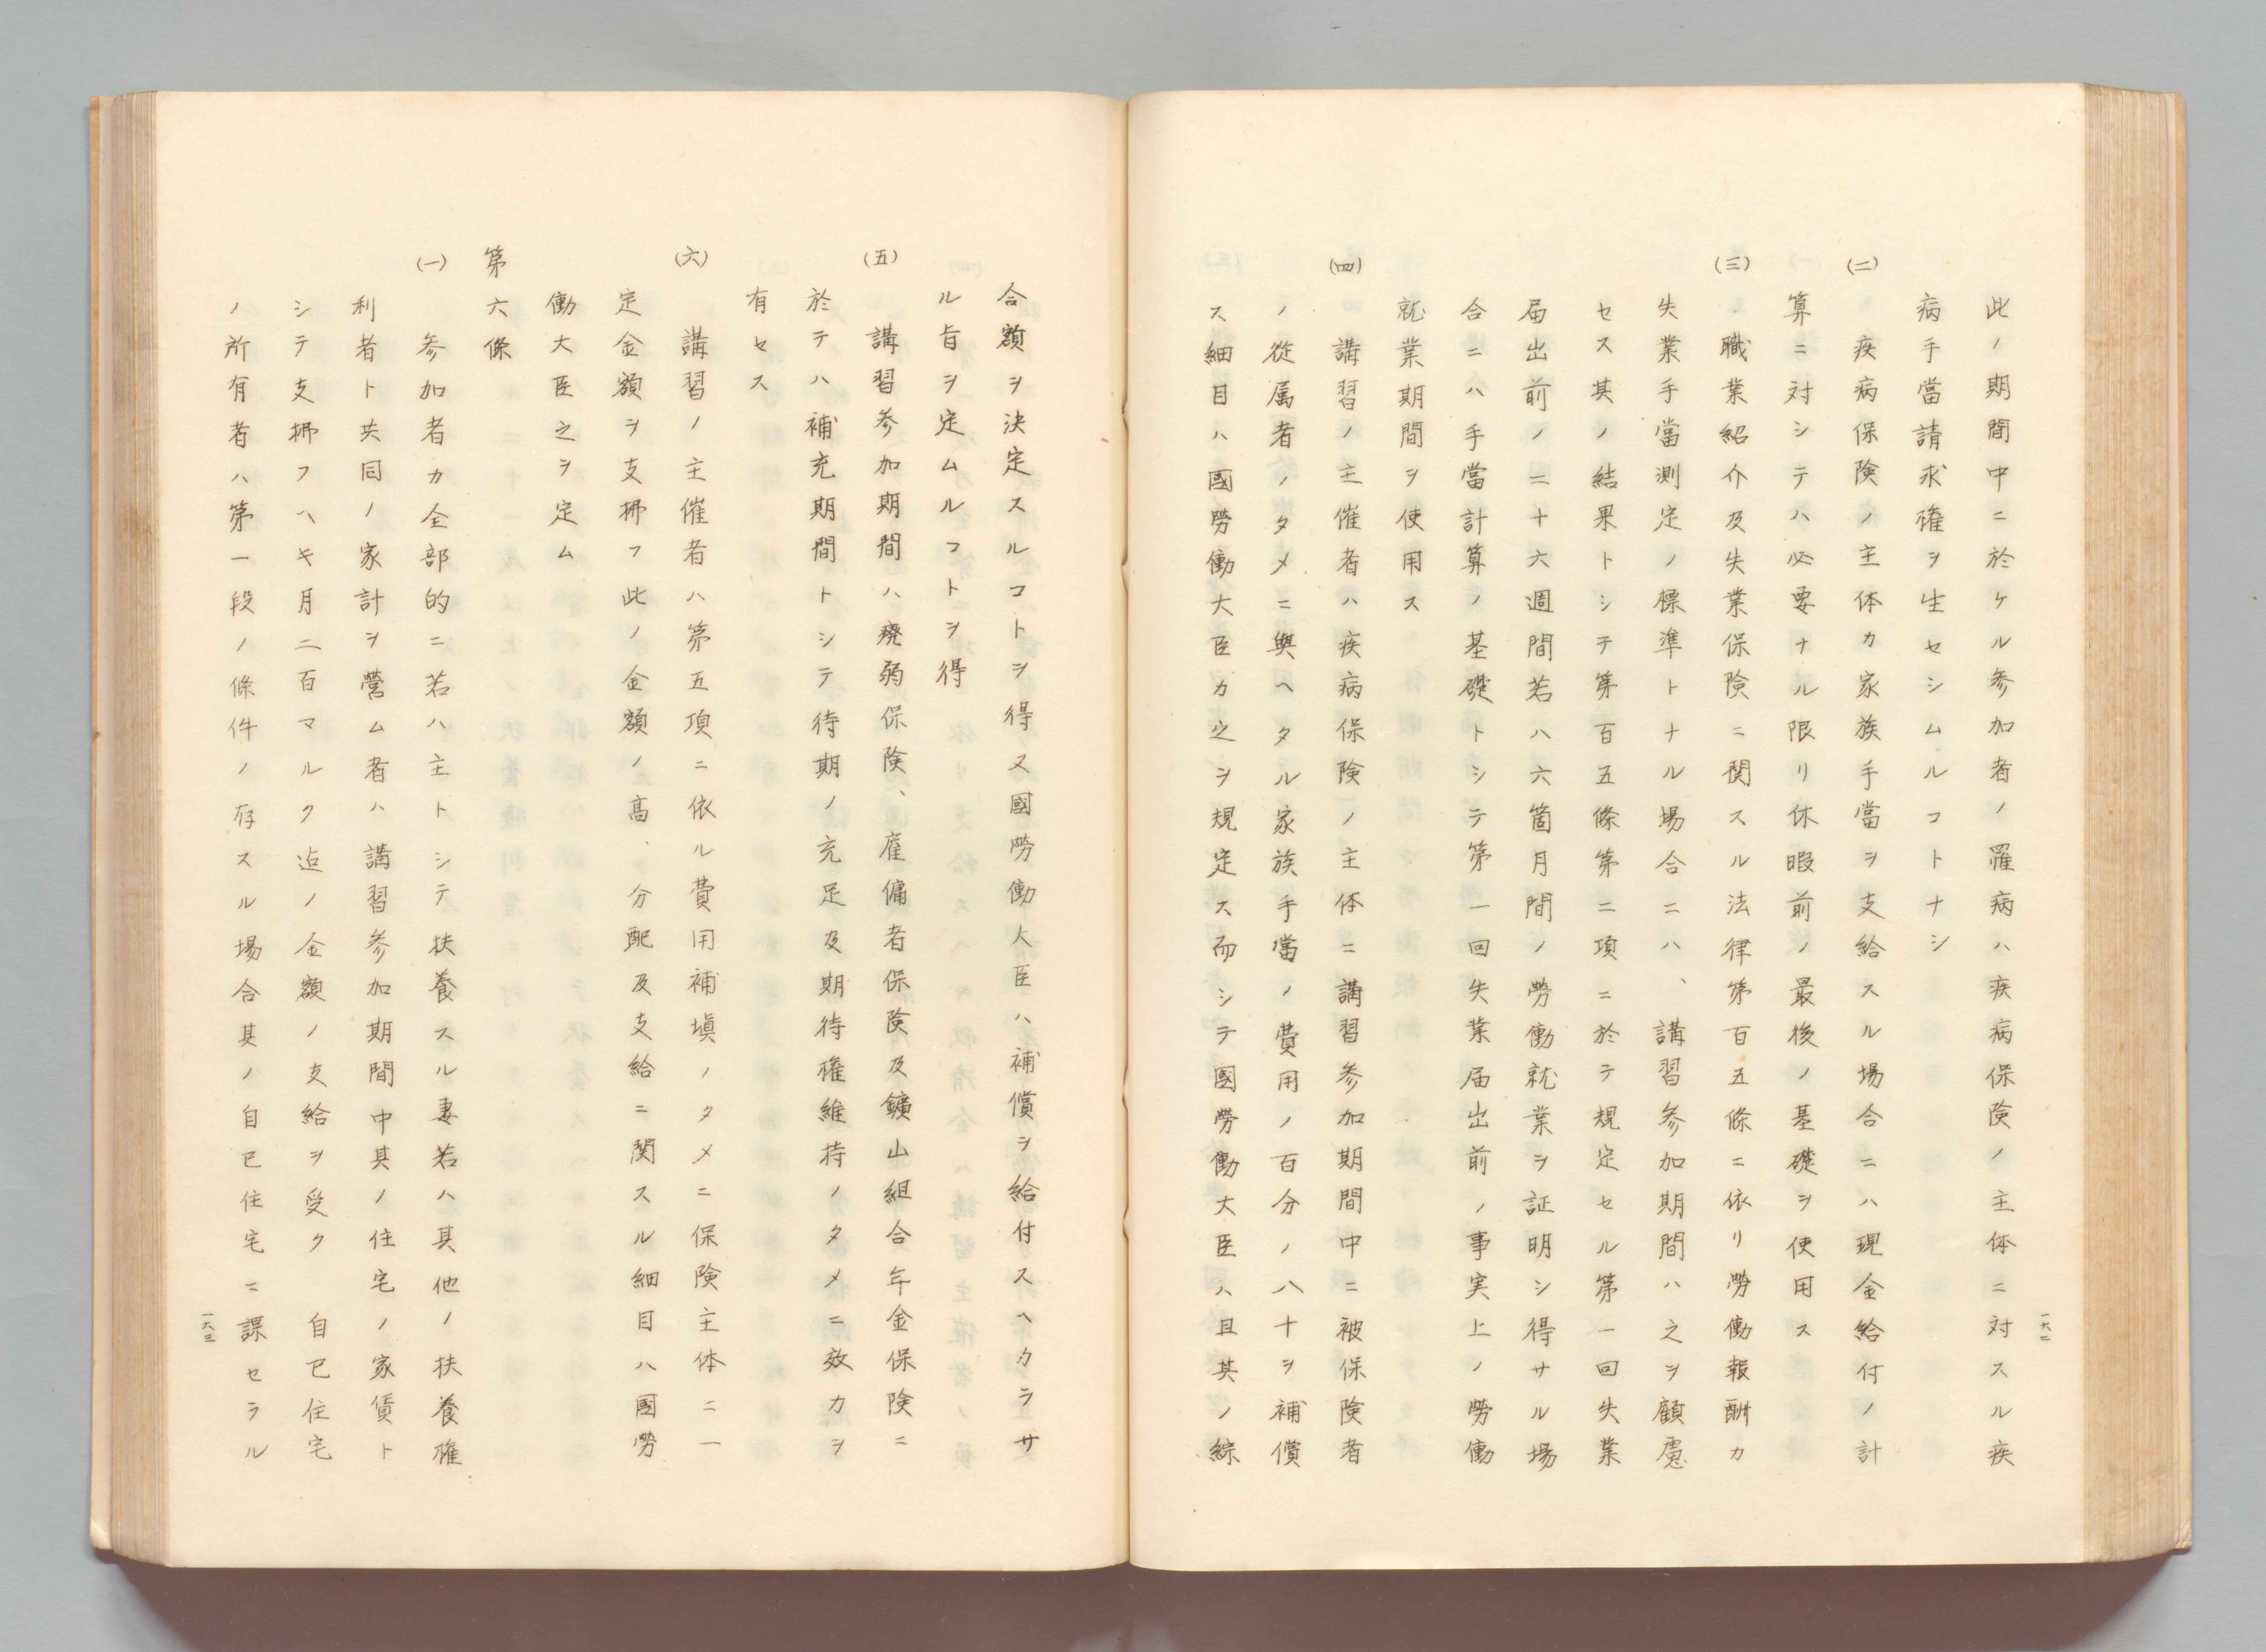 此ノ期間中ニ於ケル参加者ノ罹病ハ疾病保険ノ主体ニ対スル疾
病手當請求権ヲ生セシムルコトナシ
(二) 疾病保険ノ主体カ家族手當ヲ支給スル場合ニハ現金給付ノ計
算ニ対シテハ必要ナル限リ休暇前ノ最後ノ基礎ヲ使用ス
(三) 職業紹介及失業保険ニ関スル法律第百五條ニ依リ勞働報酬カ
失業手當測定ノ標準トナル場合ニハ、講習参加期間ハ之ヲ顧慮
セス其ノ結果トシテ第百五條第二項ニ於テ規定セル第一回失業
届出前ノ二十六週間若ハ六箇月間ノ勞働就業ヲ証明シ得サル場
合ニハ手當計算ノ基礎トシテ第一回失業届出前ノ事実上ノ勞働
就業期間ヲ使用ス
(四) 講習ノ主催者ハ疾病保険ノ主体ニ講習参加期間中ニ被保険者
ノ從属者ノタメニ與ヘタル家族手當ノ費用ノ百分ノ八十ヲ補償
ス細目ハ國勞働大臣カ之ヲ規定ス而シテ國勞働大臣ハ且其ノ綜
一六二
合額ヲ決定スルコトヲ得又國勞働大臣ハ補償ヲ給付スヘカラサ
ル旨ヲ定ムルコトヲ得
(五) 講習参加期間ハ癈弱保険、雇傭者保険及鑛山組合年金保険ニ
於テハ補充期間トシテ待期ノ充足及期待権維持ノタメニ效力ヲ
有セス
(六) 講習ノ主催者ハ第五項ニ依ル費用補塡ノタメニ保険主体ニ一
定金額ヲ支拂フ此ノ金額ノ高、分配及支給ニ関スル細目ハ國勞
働大臣之ヲ定ム
第六條
(一) 参加者カ全部的ニ若ハ主トシテ扶養スル妻若ハ其他ノ扶養権
利者ト共同ノ家計ヲ營ム者ハ講習参加期間中其ノ住宅ノ家賃ト
シテ支拂フヘキ月二百マルク迠ノ金額ノ支給ヲ受ク 自己住宅
ノ所有者ハ第一段ノ條件ノ存スル場合其ノ自己住宅ニ課セラル
一六三